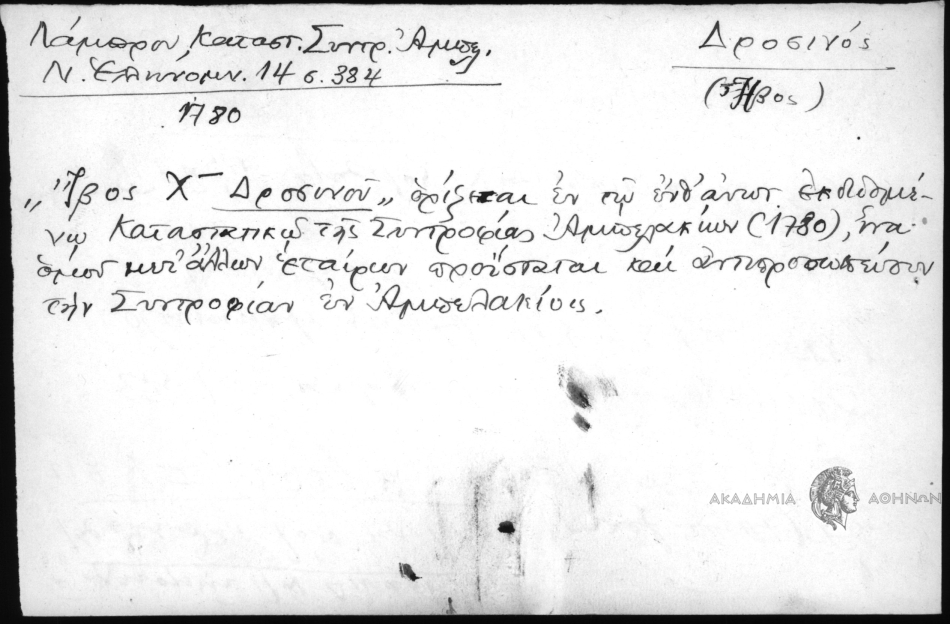 Λάμπρου, Καταστ. Συντρ. Ἀμπελ.
Ν. Ἑλληνομν. 14 σ. 384
1780
Δροσινός
(Ἦβος)
„Ἶβος Χ– Δροσινοῦ„ ὁρίζεται ἐν τῷ ἐνθ' ἀνωτ. ἐκδιδομέ-
νῳ Καταστατικῷ τῆς Συντροφίας Ἀμπελακίων (1780), ἵνα
ὁμοῦ μετ' ἄλλων ἑταίρων προΐσταται καὶ ἀντιπροσωπεύουν
τὴν Συντροφίαν ἐν Ἀμπελακίοις.
ΑΚΑΔΗΜΙΑ ΑΘΗΝΩΝ